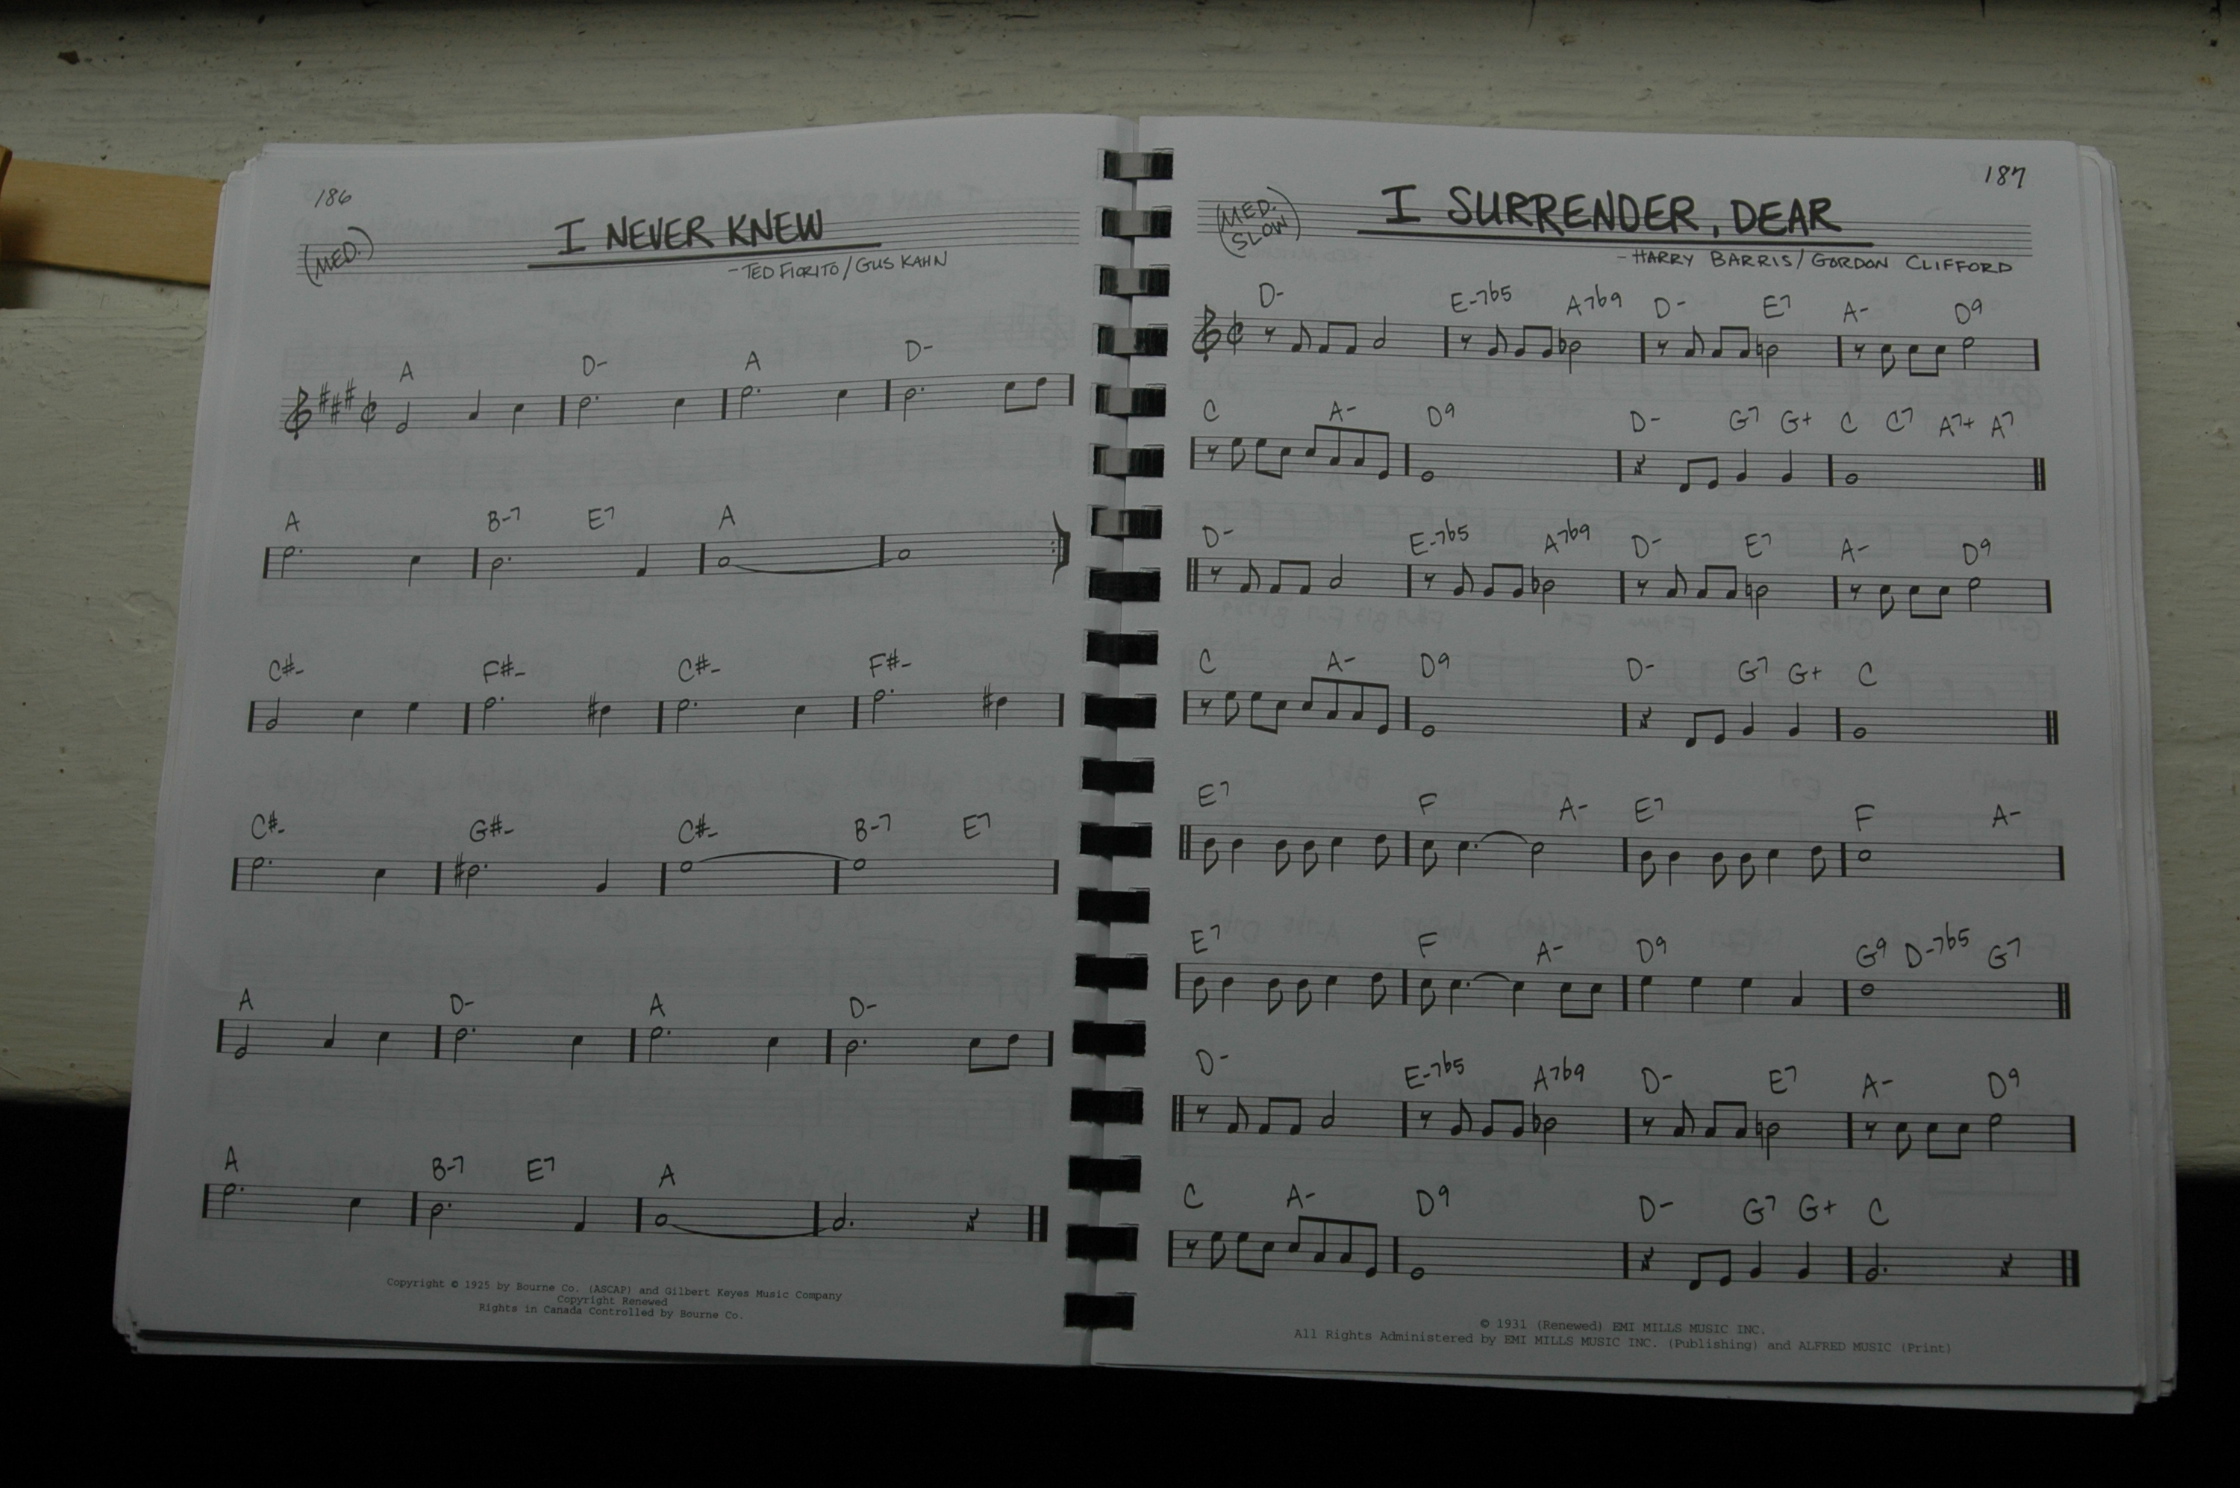 186
I NEVER KNEW
(MED.)
-TED FIORITO/GUS KAHN
A D- A D-
A B-7 E7 A
C#- F#- C#- F#-
C#- G#- C#- B-7 E7
A D- A D-
A B-7 E7 A
Copyright © 1925 by Bourne Co. (ASCAP) and Gilbert Keyes Music Company
Copyright Renewed
Rights in Canada Controlled by Bourne Co.
187
I SURRENDER, DEAR
(MED. SLOW)
-HARRY BARRIS/GORDON CLIFFORD
D- E-7b5 A7b9 D- E7 A- D9
C A- D9 D- G7 G+ C C7 A7+ A7
D- E-7b5 A7b9 D- E7 A- D9
C A- D9 D- G7 G+ C
E7 F A- E7 F A-
E7 F A- D9 G9 D-7b5 G7
D- E-7b5 A7b9 D- E7 A- D9
C A- D9 D- G7 G+ C
© 1931 (Renewed) EMI MILLS MUSIC INC.
All Rights Administered by EMI MILLS MUSIC INC. (Publishing) and ALFRED MUSIC (Print)